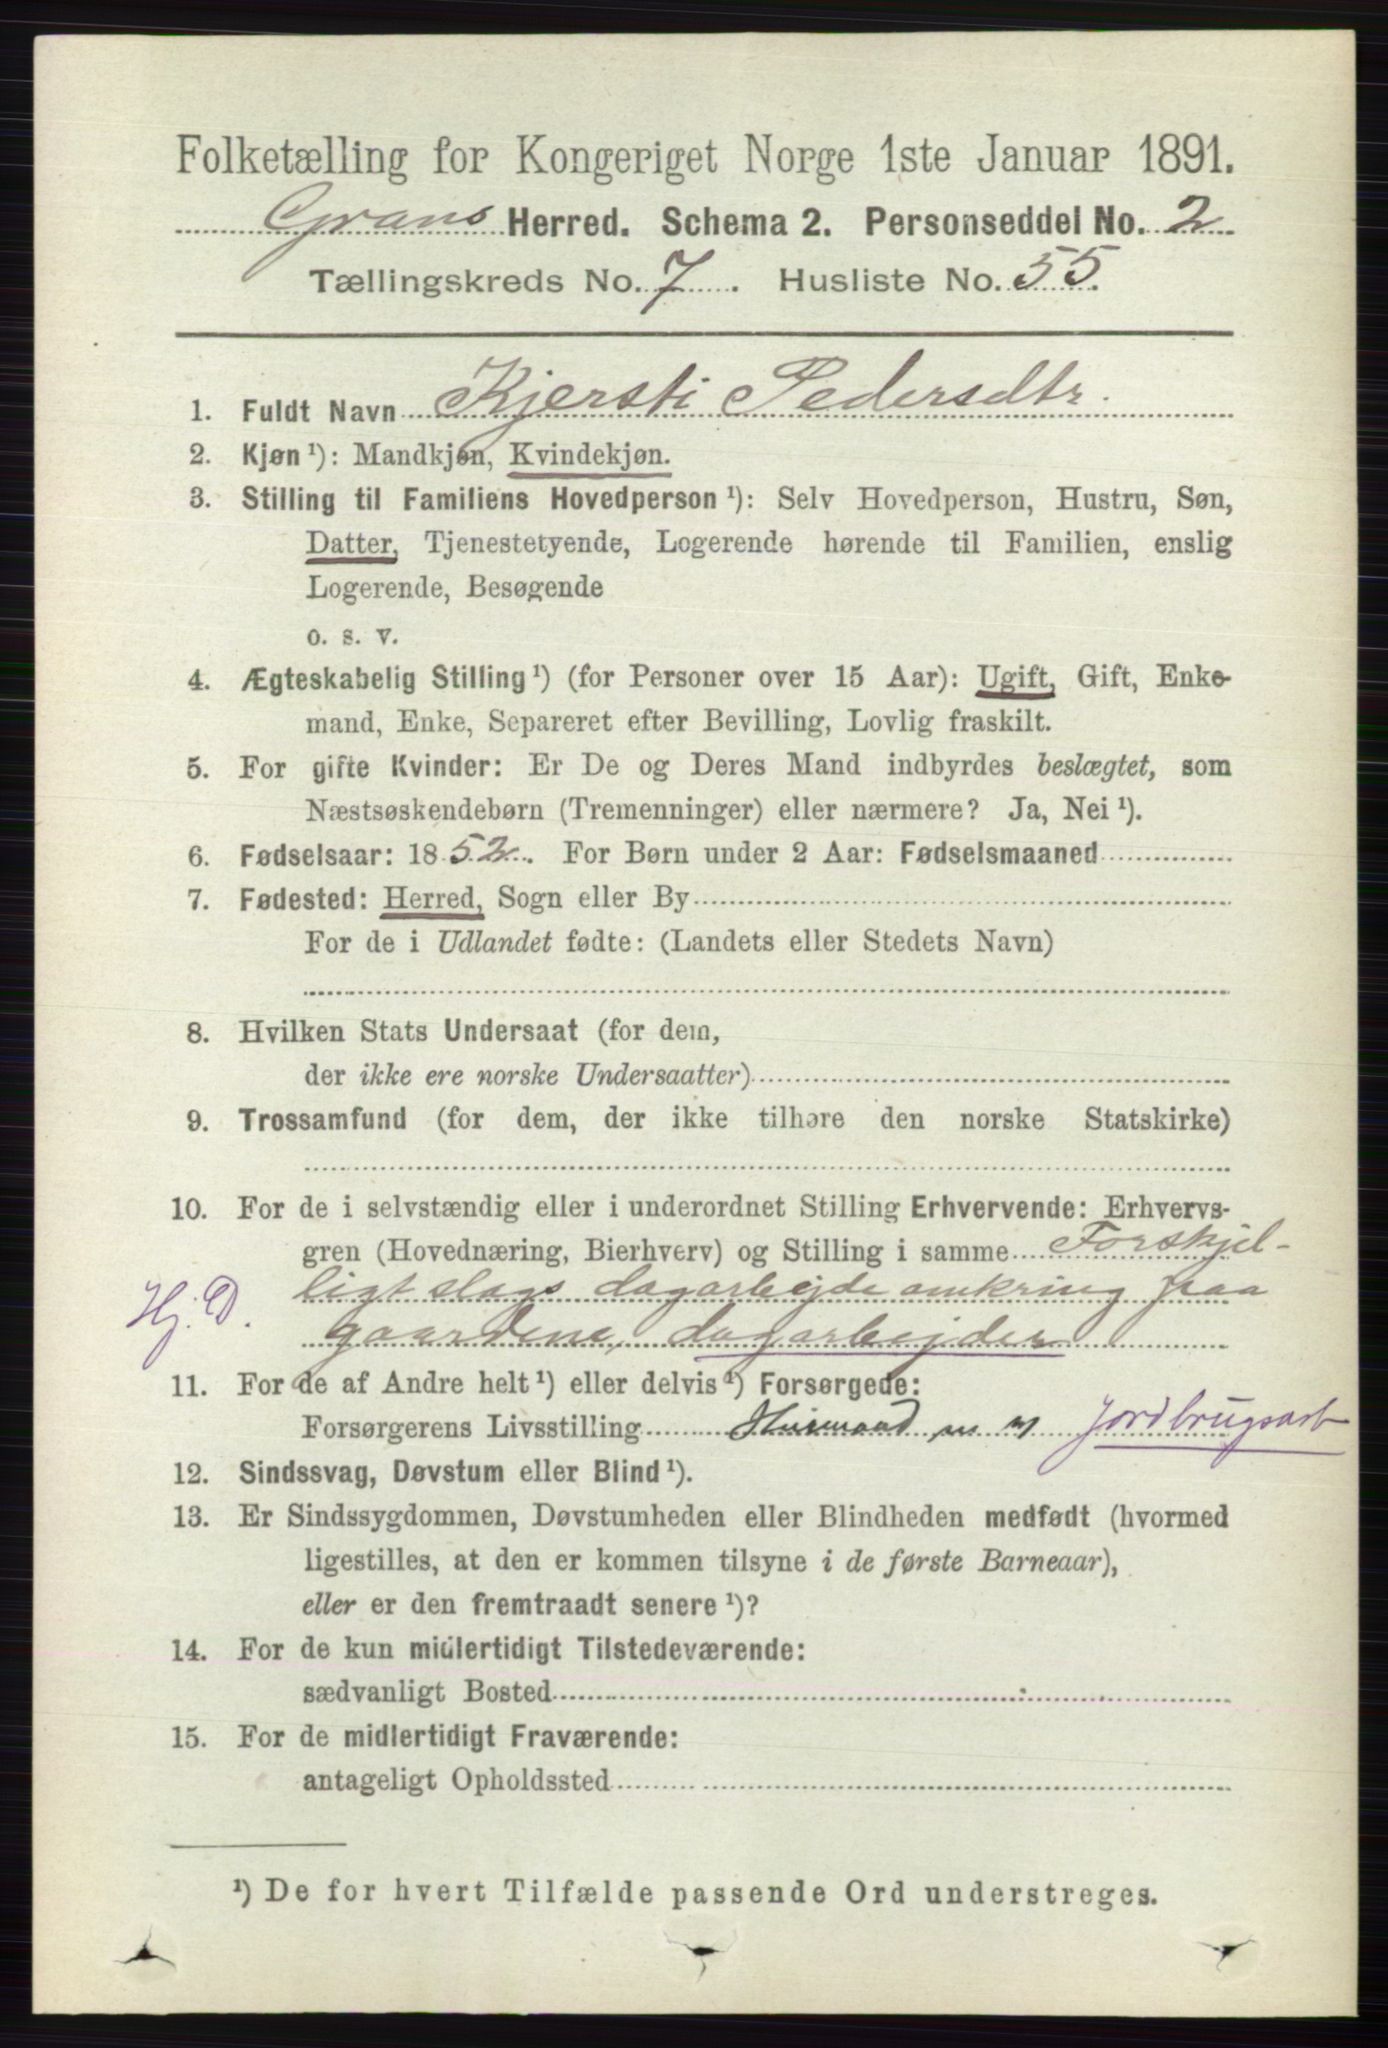 Folketælling for Kongeriget Norge 1ste Januar 1891.
Grans Herred. Schema 2. Personseddel No. 2
Tællingskreds No. 7. Husliste No. 55.
1. Fuldt Navn Kjersti Pedersdtr.
2. Kjøn ¹): Mandkjøn, Kvindekjøn.
3. Stilling til Familiens Hovedperson ¹): Selv Hovedperson, Hustru, Søn,
Datter, Tjenestetyende, Logerende hørende til Familien, enslig
Logerende, Besøgende
o. s. v.
4. Ægteskabelig Stilling ¹) (for Personer over 15 Aar): Ugift, Gift, Enke-
mand, Enke, Separeret efter Bevilling, Lovlig fraskilt.
5. For gifte Kvinder: Er De og Deres Mand indbyrdes beslægtet, som
Næstsøskendebørn (Tremenninger) eller nærmere? Ja, Nei ¹).
6. Fødselsaar: 1852. For Børn under 2 Aar: Fødselsmaaned
7. Fødested: Herred, Sogn eller By
For de i Udlandet fødte: (Landets eller Stedets Navn)
8. Hvilken Stats Undersaat (for dem,
der ikke ere norske Undersaatter)
9. Trossamfund (for dem, der ikke tilhøre den norske Statskirke)
10. For de i selvstændig eller i underordnet Stilling Erhvervende: Erhvervs-
gren (Hovednæring, Bierhverv) og Stilling i samme Forskjel-
ligt slags dagarbejde omkring paa
Hj. D. gaardene, dagarbejder
11. For de af Andre helt ¹) eller delvis ¹) Forsørgede:
Forsørgerens Livsstilling Husmand m Jordbrugsarb
12. Sindssvag, Døvstum eller Blind ¹).
13. Er Sindssygdommen, Døvstumheden eller Blindheden medfødt (hvormed
ligestilles, at den er kommen tilsyne i de første Barneaar),
eller er den fremtraadt senere ¹)?
14. For de kun midlertidigt Tilstedeværende:
sædvanligt Bosted
15. For de midlertidigt Fraværende:
antageligt Opholdssted
¹) De for hvert Tilfælde passende Ord understreges.